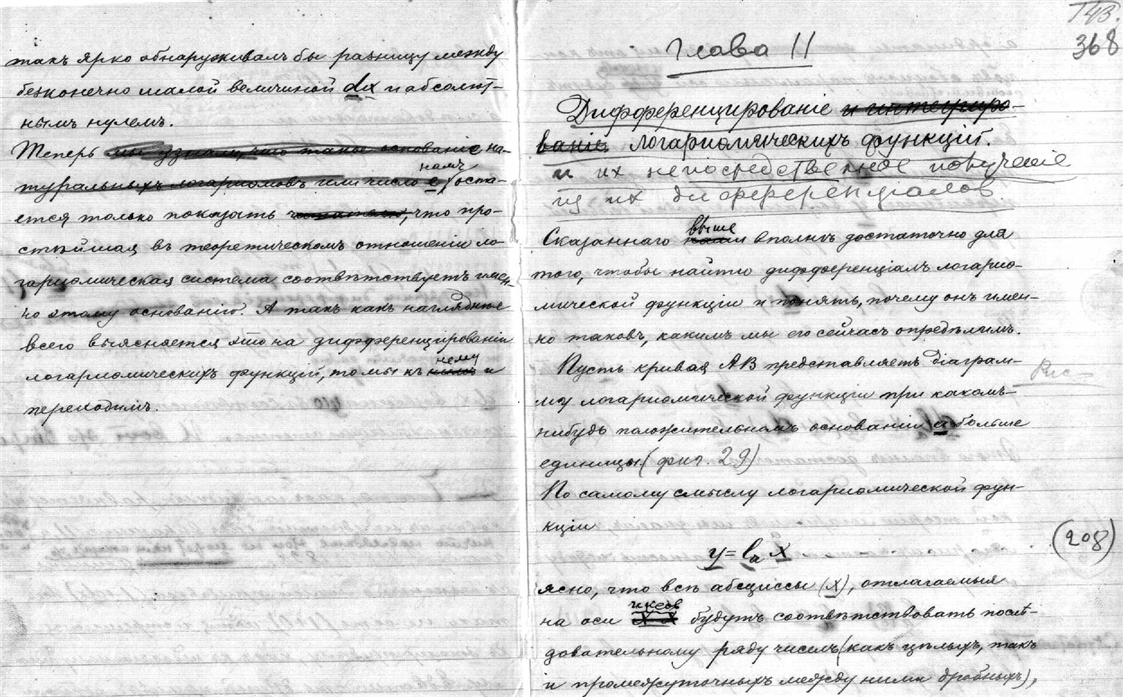 такъ ярко обнаруживалъ бы разницу между
безконечно малой величиной dx и абсолют-
нымъ нулемъ.
Теперь мы узнали, что такое основаніе на-
туральныхъ логариѳмовъ или число e, намъ оста-
ется только показать, что про-
стѣйшая въ теоретическомъ отношеніи ло-
гариѳмическая система соотвѣтствуетъ имен-
но этому основанію. А такъ какъ нагляднѣе
всего выясняется это на дифференцированіи
логариѳмическихъ функцій, то мы къ нему и
переходимъ.
Глава 11
368
Дифференцированіе и интегриро-
ваніе логариѳмическихъ функцій.
и их непосредственное получение
из их дифференциалов
Сказаннаго выше вполнѣ достаточно для
того, чтобы найти дифференціалъ логариѳ-
мической функціи и понять, почему онъ имен-
но таковъ, какимъ мы его сейчасъ опредѣлимъ.
Пусть кривая AB представляетъ діаграм-
му логариѳмической функціи при какомъ-
Рис
нибудь положительномъ основаніи a больше
единицы (фиг. 29)
По самому смыслу логариѳмической фун-
кціи
y = lₐ x
(208)
ясно, что всѣ абсциссы (x), отлагаемыя
на оси иксовъ будутъ соотвѣтствовать послѣ-
довательному ряду чиселъ (какъ цѣлыхъ, такъ
и промежуточныхъ между ними дробныхъ),